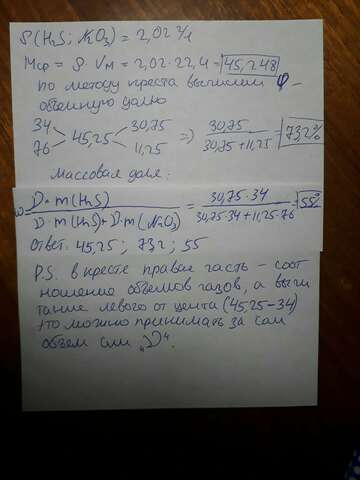 ρ(H₂S; N₂O₃) = 2,02 г/л
Mср = ρ · Vм = 2,02 · 22,4 = 45,248
по методу креста вычислим φ -
объемную долю
34 30,75
45,25 => 30,75 / 30,75 + 11,25 = 73,2%
76 11,25
Массовая доля:
ω = ν · m(H₂S) / ν · m(H₂S) + ν · m(N₂O₃) = 30,75 · 34 / 30,75 · 34 + 11,25 · 76 = 55%
Ответ: 45,25 ; 73,2 ; 55
P.S. в кресте правая часть - соот
ношение объемов газов, а вычи
тание левого от центра (45,25 - 34)
это можно принимать за сам
объем или "ν".